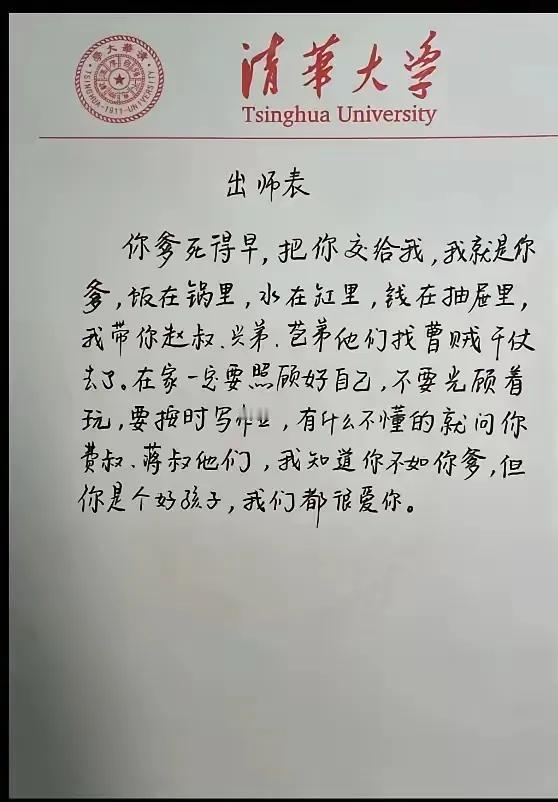 清華大學
TSINGHUA -1911- UNIVERSITY
清華大学
Tsinghua University
出师表
你爹死得早，把你交给我，我就是你
爹，饭在锅里，水在缸里，钱在抽屉里，
我带你赵叔、兴弟、苞弟他们找曹贼干仗
去了。在家一定要照顾好自己，不要光顾着
玩，要按时写，有什么不懂的就问你
费叔、蒋叔他们，我知道你不如你爹，但
你是个好孩子，我们都很爱你。